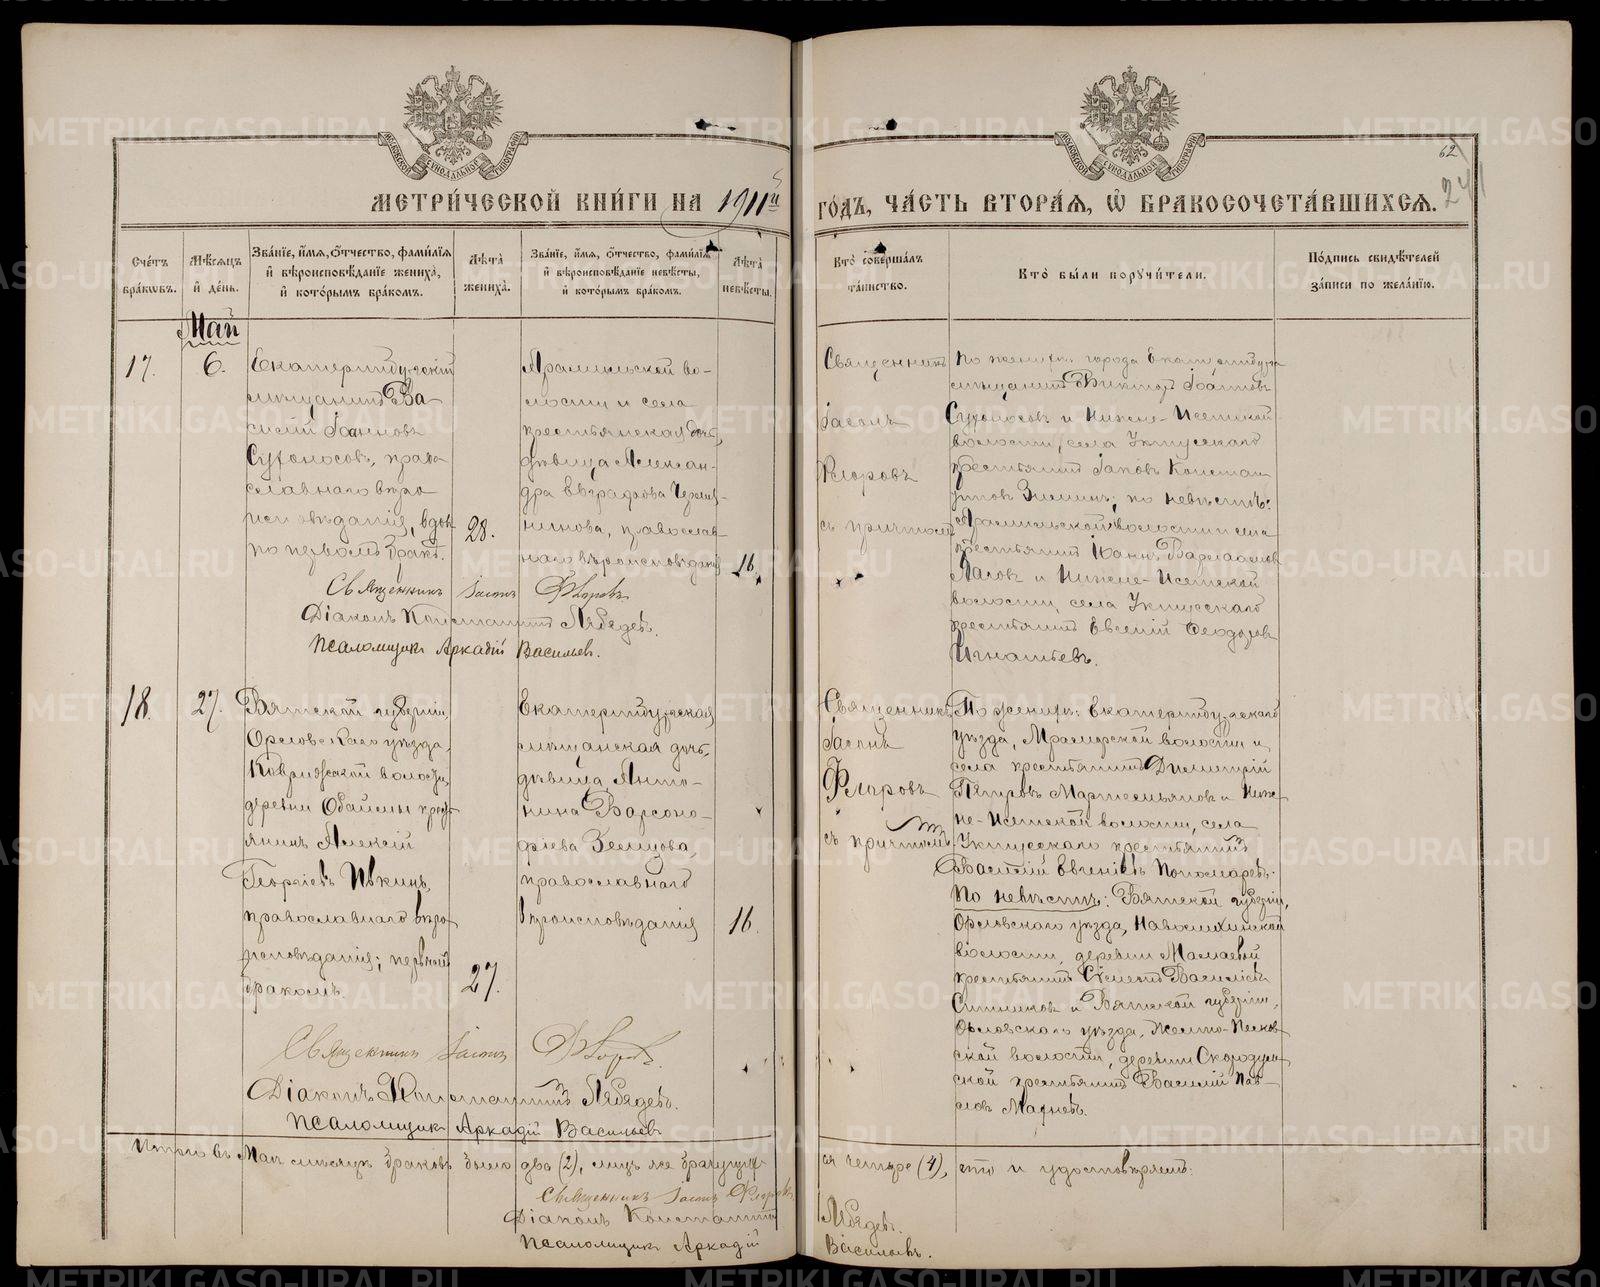 МЕТРИ́ЧЕСКОЙ КНИ́ГИ НА 1911й ГО́ДЪ, ЧА́СТЬ ВТОРА́Я, Ѽ БРАКОСОЧЕТА́ВШИХСЯ.
62
Сче́тъ бра́кѡвъ.
Мѣ́сяцъ и҆ де́нь.
Зва́нїе, и҆́мя, ѻ҆́тчество, фами́лїя
и҆ вѣроисповѣ́данїе жениха̀,
и҆ кото́рымъ бра́комъ.
Лѣта̀ жениха̀.
Зва́нїе, и҆́мя, ѻ҆́тчество, фами́лїя
и҆ вѣроисповѣ́данїе невѣ́сты,
и҆ кото́рымъ бра́комъ.
Лѣта̀ невѣ́сты.
Кто̀ соверша́лъ
та́инство.
Кто̀ бы́ли поручи́тели.
По́дпись свидѣ́телей
за́писи по жела́нїю.
Май
17.
6.
Екатеринбургскій
мѣщанинъ Ва
силій Іоанновъ
Сухоносовъ, право
славнаго вѣро
исповѣданія, вдов
по первомъ бракѣ.
28.
Арамильской во-
лости и села
крестьянская дочь,
дѣвица Алексан-
дра Евграфова
нинова, православ-
наго вѣроисповѣданія
16.
Священникъ
Іасонъ
Флоровъ
съ причтомъ
По женихѣ: города Екатеринбурга
мѣщанинъ Викторъ Іоанновъ
Сухоносовъ и Нижне-Исетской
волости, села Уктусскаго
крестьянинъ Іаковъ Констан
тиновъ по невѣстѣ:
Арамильской волости и села
крестьянинъ Іоаннъ
и Нижне-Исетской
волости, села Уктусскаго
крестьянинъ Евгеній Ѳеодоровъ
Игнатьевъ.
Священникъ Іасонъ Флоровъ
Діаконъ Константинъ Лебедевъ.
Псаломщикъ Аркадій Васильевъ.
18.
27.
Вятской губерніи,
Орловскаго уѣзда,
волости,
деревни кресть
янинъ Алексій
Георгіевъ Ивкинъ,
православнаго вѣро
исповѣданія; первымъ
бракомъ.
27.
Екатеринбургская
мѣщанская дочь,
дѣвица Анто-
нина Варсоно-
фіева Земцова,
православнаго
вѣроисповѣданія
16.
Священникъ
Іасонъ
Флоровъ
съ причтомъ
По женихѣ: Екатеринбургскаго
уѣзда, Мраморской волости и
села крестьянинъ Димитрій
Петровъ Мартемьяновъ и Ниж-
не-Исетской волости, села
Уктусскаго крестьянинъ
Василій Евгеніевъ Пономаревъ.
По невѣстѣ: Вятской губерніи,
Орловскаго уѣзда,
волости, деревни
крестьянинъ Василіевъ
Ситниковъ и Вятской губерніи,
Орловскаго уѣзда, Желто-Песков
ской волости, деревни
ской крестьянинъ Василій Пав-
ловъ
Священникъ Іасонъ Флоровъ.
Діаконъ Константинъ Лебедевъ.
Псаломщикъ Аркадій Васильевъ
Итого въ Маѣ мѣсяцѣ браковъ было два (2), лицъ же брачущих
ся четыре (4), что и удостовѣряемъ:
Священникъ Іасонъ Флоровъ
Діаконъ Константинъ Лебедевъ.
Псаломщикъ Аркадій Васильевъ.
METRIKI.GASO-URAL.RU